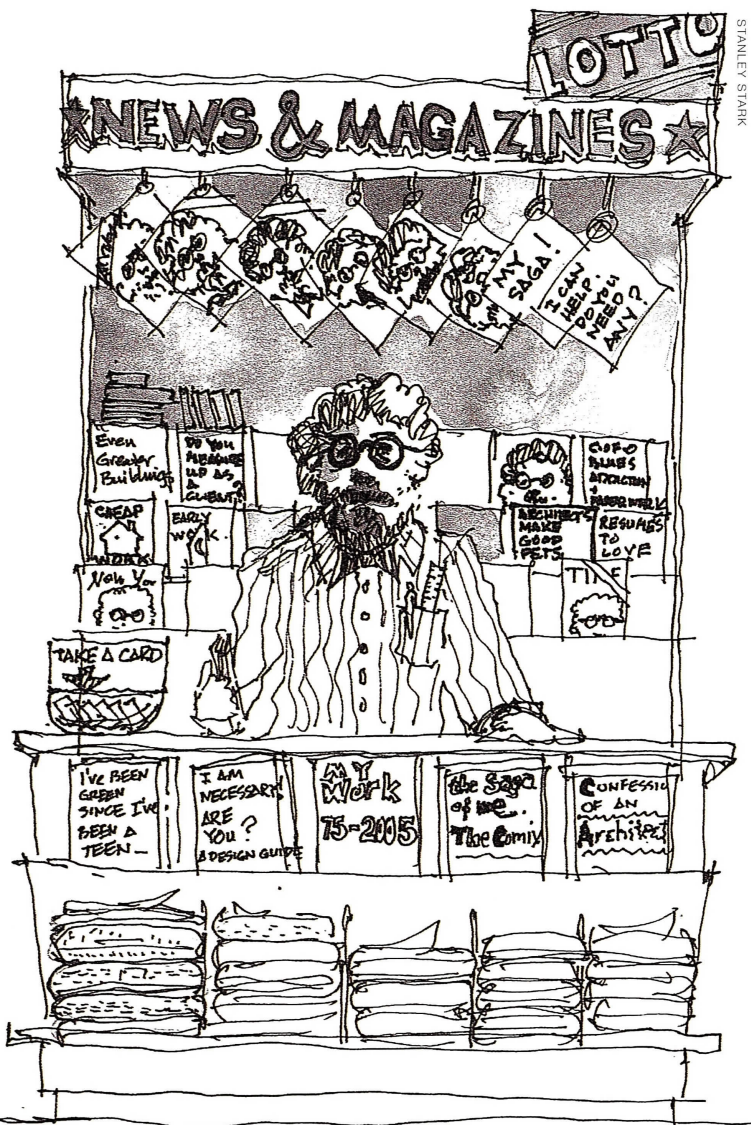 STANLEY STARK
LOTTO
★NEWS & MAGAZINES★
MY
SAGA!
I CAN
HELP.
DO YOU
NEED
ANY?
Even
Greater
Buildings
DO YOU
MEASURE
UP AS
A
CLIENT?
C OF O
BLUES
ADDICTION
+
PAPERWORK
CHEAP
WORK
EARLY
WORK
ARCHITECTS
MAKE
GOOD
PETS
RESUMES
TO
LOVE
New Yo
TIME
TAKE A CARD
I'VE BEEN
GREEN
SINCE I'VE
BEEN A
TEEN—
I AM
NECESSARY!
ARE
YOU?
A DESIGN GUIDE
MY
Work
75-2005
the Saga
of me.
The Comix
CONFESSIO
OF AN
Architect